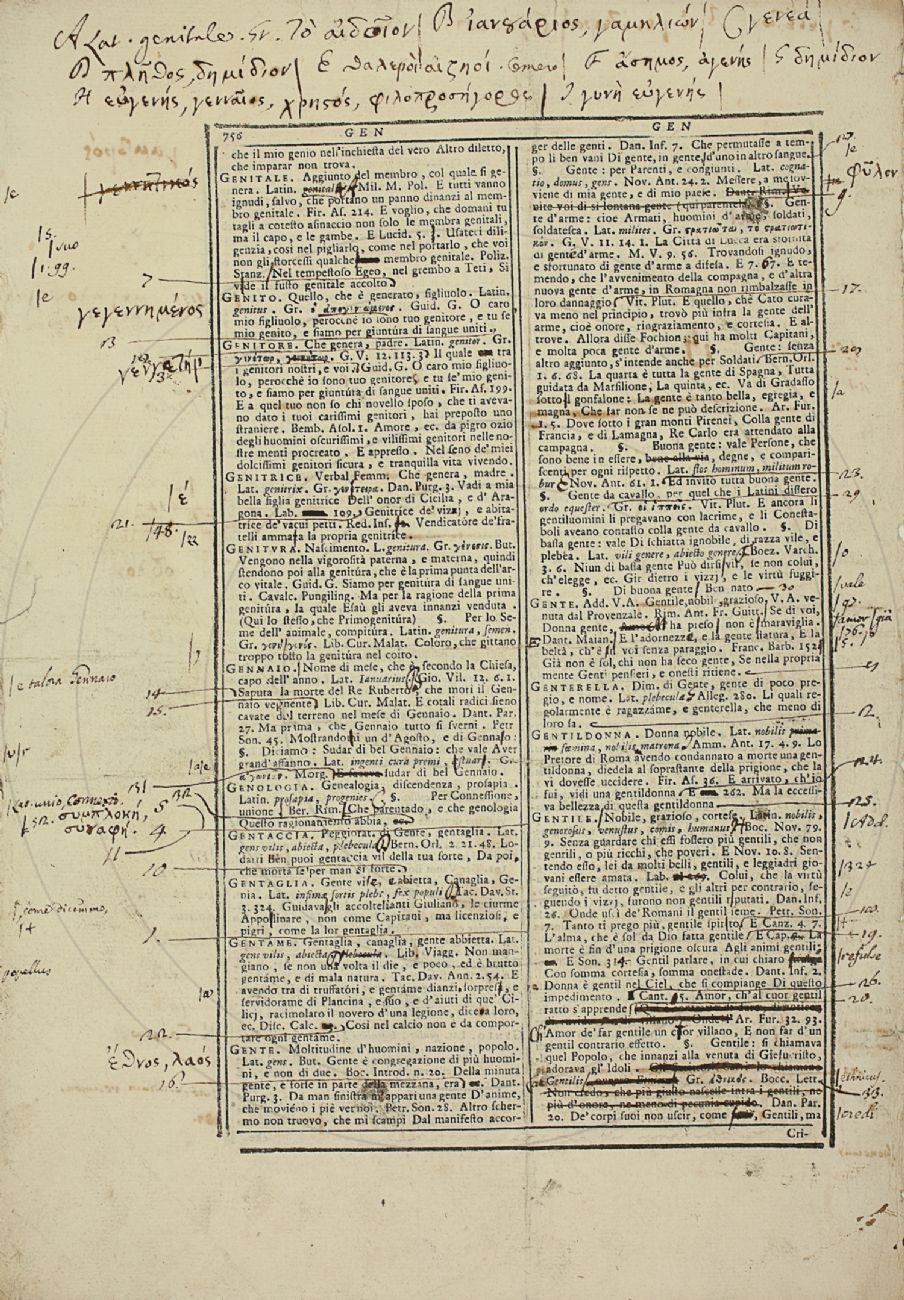 A Lat. genitale. Gr. τὸ αἰδοῖον | B ἰανουάριος, γαμηλιών | C γενεά
D πλῆθος, δημίδιον | E θαλεροὶ αἰζηοί. | F ἄσημος, ἀγενής | G δημίδιον
H εὐγενής, γενναῖος, χρηστός, | I γυνὴ εὐγενής |
756 GEN GEN
che il mio genio nell'inchiesta del vero Altro diletto,
che imparar non trova.
GENITALE. Aggiunto del membro, col quale si ge-
nera. Latin. genitalis Mil. M. Pol. E tutti vanno
ignudi, salvo, che portano un panno dinanzi al mem-
bro genitale. Fir. As. 214. E voglio, che domani tu
tagli a cotesto asinaccio non solo le membra genitali,
ma il capo, e le gambe. E Lucid. 5. Usateci dili-
genzia, così nel pigliarlo, come nel portarlo, che voi
non gli storcessi qualche membro genitale. Poliz.
Stanz. Nel tempestoso Egeo, nel grembo a Teti, Si
vide il fusto genitale accolto
GENITO. Quello, che è generato, figliuolo. Latin.
genitus. Gr. Guid. G. O caro
mio figliuolo, perocchè io sono tuo genitore, e tu se'
mio genito, e siamo per giuntura di sangue uniti.
GENITORE. Che genera, padre. Latin. genitor. Gr.
G. V. 12. 113. 3 Il quale tra
i genitori nostri, e voi. Guid. G. O caro mio figliuo-
lo, perocchè io sono tuo genitore, e tu se' mio geni-
to, e siamo per giuntura di sangue uniti. Fir. As. 199.
E a quel tuo non so chi novello sposo, che ti aveva-
no dato i tuoi carissimi genitori, hai preposto uno
straniere. Bemb. Asol. 1. Amore, ec. da pigro ozio
degli huomini oscurissimi, e vilissimi genitori nelle no-
stre menti procreato. E appresso. Nel seno de' miei
dolcissimi genitori sicura, e tranquilla vita vivendo.
GENITRICE. Verbal Femm. Che genera, madre.
Lat. genitrix. Gr. Dan. Purg. 3. Vadi a mia
bella figlia genitrice Dell'onor di Cicilia, e d'Ara-
gona. Lab. 109. Genitrice de' vizj, e abita-
trice de' vacui petti. Red. Ins. Vendicatore de' fra-
telli ammazza la propria genitrice.
GENITURA. Nascimento. L. genitura. Gr. γένεσις. But.
Vengono nella vigorosità paterna, e materna, quindi
stendono poi alla genitura, che è la prima punta dell'ar-
co vitale. Guid. G. Siamo per genitura di sangue uni-
ti. Cavalc. Pungiling. Ma per la ragione della prima
genitura, la quale Esaù gli aveva innanzi venduta.
(Qui lo stesso, che Primogenitura) §. Per lo Se-
me dell'animale, compitura. Latin. genitura, semen.
Gr. Lib. Cur. Malat. Coloro, che gittano
troppo tosto la genitura nel coito.
GENNAIO. Nome di mese, che è secondo la Chiesa,
capo dell'anno. Lat. Ianuarius. Gio. Vil. 12. 6. 1.
Saputa la morte del Re Ruberto, che morì il Gen-
naio vegnente. Lib. Cur. Malat. E cotali radici sieno
cavate del terreno nel mese di Gennaio. Dant. Par.
27. Ma prima, che Gennaio tutto si sverni. Petr.
Son. 45. Mostrandosi un d'Agosto, e di Gennaio:
§. Diciamo: Sudar di bel Gennaio: che vale Aver
grand'affanno. Lat. ingenti curâ premi, æstuare. Gr.
Morg. sudar di bel Gennaio.
GENOLOGIA. Genealogia, discendenza, prosapia.
Latin. prosapia, progenies. §. Per Connessione,
unione. Ber. Rim. Che parentado, e che genologia
Questo ragionamento abbia,
GENTACCIA. Peggiorat. di Gente, gentaglia. Lat.
gens vilis, abiecta, plebecula. Bern. Orl. 2. 21. 48. Lo-
darti Ben puoi gentaccia vil della tua sorte, Da poi,
che morta se' per man sì forte.
GENTAGLIA. Gente vile, e abietta, Canaglia, Ge-
nìa. Lat. infimæ sortis plebs, fex populi. Tac. Dav. St.
3. 324. Guidavagli accoltellanti Giuliano, le ciurme
Appostinare, non come Capitani, ma licenziosi, e
pigri, come la lor gentaglia.
GENTAME. Gentaglia, canaglia, gente abbietta. Lat.
gens vilis, abiecta, plebecula. Lib. Viagg. Non man-
giano, se non una volta il die, e poco, ed è brutto
gentame, e di mala natura. Tac. Dav. Ann. 2. 54. E
avendo tra di truffatori, e gentame dianzi sorpresi, e
servidorame di Plancina, e suo, e d'aiuti di que' Ci-
licj, racimolaro il novero d'una legione, diceva loro,
ec. Disc. Calc. Così nel calcio non è da compor-
tare ogni gentame.
GENTE. Moltitudine d'huomini, nazione, popolo.
Lat. gens. But. Gente è congregazione di più huomi-
ni, e non di due. Bocc. Introd. n. 20. Della minuta
gente, e forse in parte della mezzana, era Dant.
Purg. 3. Da man sinistra m'apparì una gente D'anime,
che movieno i piè ver noi. Petr. Son. 28. Altro scher-
mo non truovo, che mi scampi Dal manifesto accor-
ger delle genti. Dan. Inf. 7. Che permutasse a tem-
po li ben vani Di gente, in gente, d'uno in altro sangue.
§. Gente: per Parenti, e congiunti. Lat. cogna-
tio, domus, gens. Nov. Ant. 24. 2. Messere, a me co-
viene di mia gente, e di mio paese. Dant. Rim.
nite voi di sì lontana gente (qui parentela) §. Gen-
te d'arme: cioè Armati, huomini d'arme, soldati,
soldatesca. Lat. milites. Gr. στρατιῶται, τὸ στρατιωτι-
κόν. G. V. 11. 14. 1. La Città di Lucca era sfornita
di gente d'arme. M. V. 9. 56. Trovandosi ignudo,
e sfortunato di gente d'arme a difesa. E 7. 67. E te-
mendo, che l'avvenimento della compagna, e d'altra
nuova gente d'arme, in Romagna non rimbalzasse in
loro dannaggio. Vit. Plut. E quello, che Cato cura-
va meno nel principio, trovò più infra la gente dell'
arme, cioè onore, ringraziamento, e cortesia. E al-
trove. Allora disse Fochion: qui ha molti Capitani,
e molta poca gente d'arme. §. Gente: senza
altro aggiunto, s'intende anche per Soldati. Bern. Orl.
1. 6. 68. La quarta è tutta la gente di Spagna, Tutta
guidata da Marsilione, La quinta, ec. Va di Gradasso
sotto il gonfalone: La gente è tanto bella, egregia, e
magna, Che far non se ne può descrizione. Ar. Fur.
1. 5. Dove sotto i gran monti Pirenei, Colla gente di
Francia, e di Lamagna, Re Carlo era attendato alla
campagna. §. Buona gente: vale Persone, che
sono bene in essere, bene alla via, degne, e compari-
scenti per ogni rispetto. Lat. flos hominum, militum ro-
bur. Nov. Ant. 61. 1. Ed invitò tutta buona gente.
§. Gente da cavallo, per quel che i Latini dissero
ordo equester. Gr. οἱ ἱππεῖς. Vit. Plut. E ancora li
gentiluomini li pregavano con lacrime, e li Conesta-
boli aveano contasto colla gente da cavallo. §. Di
bassa gente: vale Di schiatta ignobile, di razza vile, e
plebea. Lat. vili genere, abiecto genere. Boez. Varch.
3. 6. Niun di bassa gente Può dirsi vil, se non colui,
ch'elegge, ec. Gir dietro i vizj, e le virtù fuggi-
re. §. Di buona gente: Ben nato 30
GENTE. Add. V. A. Gentile, nobile, grazioso, V. A. ve-
nuta dal Provenzale. Rim. Ant. Fr. Guitt. Se di voi,
Donna gente, ha preso non è maraviglia.
Dant. Maian. E l'adornezze, e la gente statura, E la
beltà, ch'è 'n voi senza paraggio. Franc. Barb. 152.
Già non è sol, chi non ha seco gente, Se nella propria
mente Genti pensieri, e onesti ritiene.
GENTERELLA. Dim. di Gente, gente di poco pre-
gio, e nome. Lat. plebecula. Alleg. 280. Li quali re-
golarmente è ragazzame, e genterella, che meno di
loro sa.
GENTILDONNA. Donna nobile. Lat. nobilis
fœmina, nobilis matrona. Amm. Ant. 17. 4. 9. Lo
Pretore di Roma avendo condannato a morte una gen-
tildonna, diedela al soprastante della prigione, che la
vi dovesse uccidere. Fir. As. 36. E arrivato, ch'io
fui, vidi una gentildonna E 262. Ma la eccessi-
va bellezza di questa gentildonna
GENTILE. Nobile, grazioso, cortese. Latin. nobilis,
generosus, venustus, comis, humanus. Boc. Nov. 79.
9. Senza guardare chi essi fossero più gentili, che non
gentili, o più ricchi, che poveri. E Nov. 10. 8. Sen-
tendo esso, lei da molti belli, e gentili, e leggiadri gio-
vani essere amata. Lab. Colui, che la virtù
seguitò, fu detto gentile, e gli altri per contrario, se-
guendo i vizj, furono non gentili riputati. Dan. Inf.
26. Onde uscì de' Romani il gentil seme. Petr. Son.
7. Tanto ti prego più, gentile spirito, E Canz. 4. 7.
L'alma, che è sol da Dio fatta gentile. E Cap. La
morte è fin d'una prigione oscura Agli animi gentili:
E Son. 314. Gentil parlare, in cui chiaro
Con somma cortesia, somma onestade. Dant. Inf. 2.
Donna è gentil nel Ciel, che si compiange Di questo
impedimento. Cant. 5. Amor, ch'al cuor gentil
ratto s'apprende
Ar. Fur. 32. 93.
Amor de' far gentile un cor villano, E non far d'un
gentil contrario effetto. §. Gentile: si chiamava
quel Popolo, che innanzi alla venuta di Giesucristo,
adorava gl'Idoli
Gentilis, Gr. ἐθνικός. Bocc. Lett.
Non credo, che più giusto nascesse intra i gentili, nè
più d'onore, nè meno di pecunia cupido. Dan. Par.
20. De' corpi suoi non uscir, come Gentili, ma
Cri-
γεγεννημένος
13
21.
148.
|e talora Gennaio
14
15.
συμπλοκή,
συναφή.
4.
11
10
|, come dicemmo,
1.
22.
ἔθνος, λαός
16.
φῦλον
9.
17.
|a
23.
29
|o
|vale
12.
24.
25.
|Add.
|324
19.
26.
20.
|ethnicus.
33.
|credi